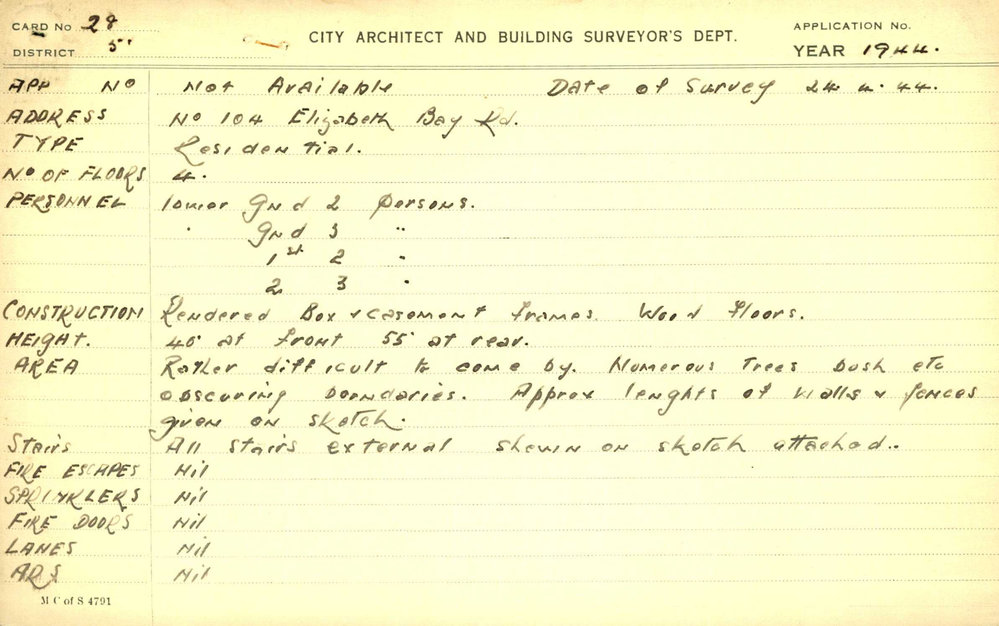 CARD No 28
DISTRICT 5'
CITY ARCHITECT AND BUILDING SURVEYOR'S DEPT.
APPLICATION No.
YEAR 1944.
APP No Not Available Date of Survey 24. 4. 44.
ADDRESS No 104 Elizabeth Bay Rd.
TYPE Residential.
No OF FLOORS 4.
PERSONNEL lower Gnd 2 persons.
" Gnd 3 "
1st 2 "
2 3 "
CONSTRUCTION Rendered Box & casement frames. Wood floors.
HEIGHT. 40' at front 55' at rear.
AREA Rather difficult to come by. Numerous Trees bush etc
obscuring boundaries. Approx lenghts of walls & fences
given on sketch.
Stairs All stairs external shewn on sketch attached..
FIRE ESCAPES Nil
SPRINKLERS Nil
FIRE DOORS Nil
LANES Nil
ARS Nil
M C of S 4791